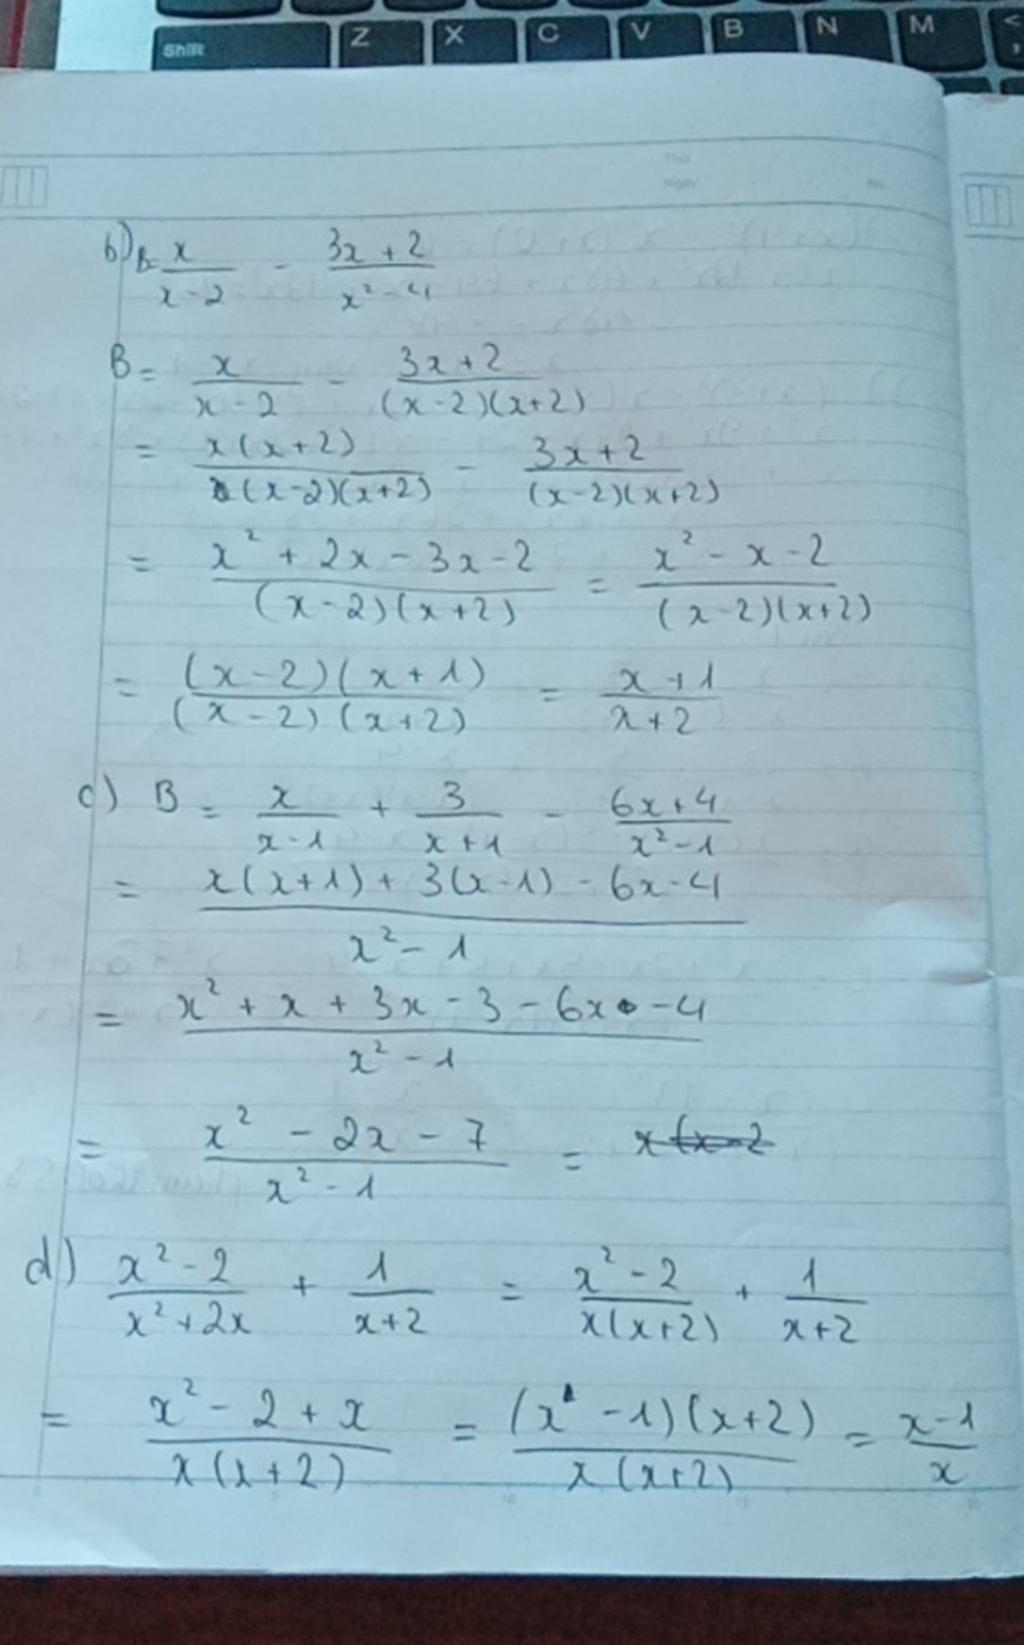 Shift Z X C V B N M <
,
Thứ
Ngày No
b) B= x/(x-2) - (3x+2)/(x²-4)
B = x/(x-2) - (3x+2)/((x-2)(x+2))
= x(x+2)/((x-2)(x+2)) - (3x+2)/((x-2)(x+2))
= (x²+2x-3x-2)/((x-2)(x+2)) = (x²-x-2)/((x-2)(x+2))
= ((x-2)(x+1))/((x-2)(x+2)) = (x+1)/(x+2)
c) B = x/(x-1) + 3/(x+1) - (6x+4)/(x²-1)
= (x(x+1)+3(x-1)-6x-4)/(x²-1)
= (x²+x+3x-3-6x-4)/(x²-1)
= (x²-2x-7)/(x²-1) = x(x-2
d) (x²-2)/(x²+2x) + 1/(x+2) = (x²-2)/(x(x+2)) + 1/(x+2)
= (x²-2+x)/(x(x+2)) = ((x-1)(x+2))/(x(x+2)) = (x-1)/x